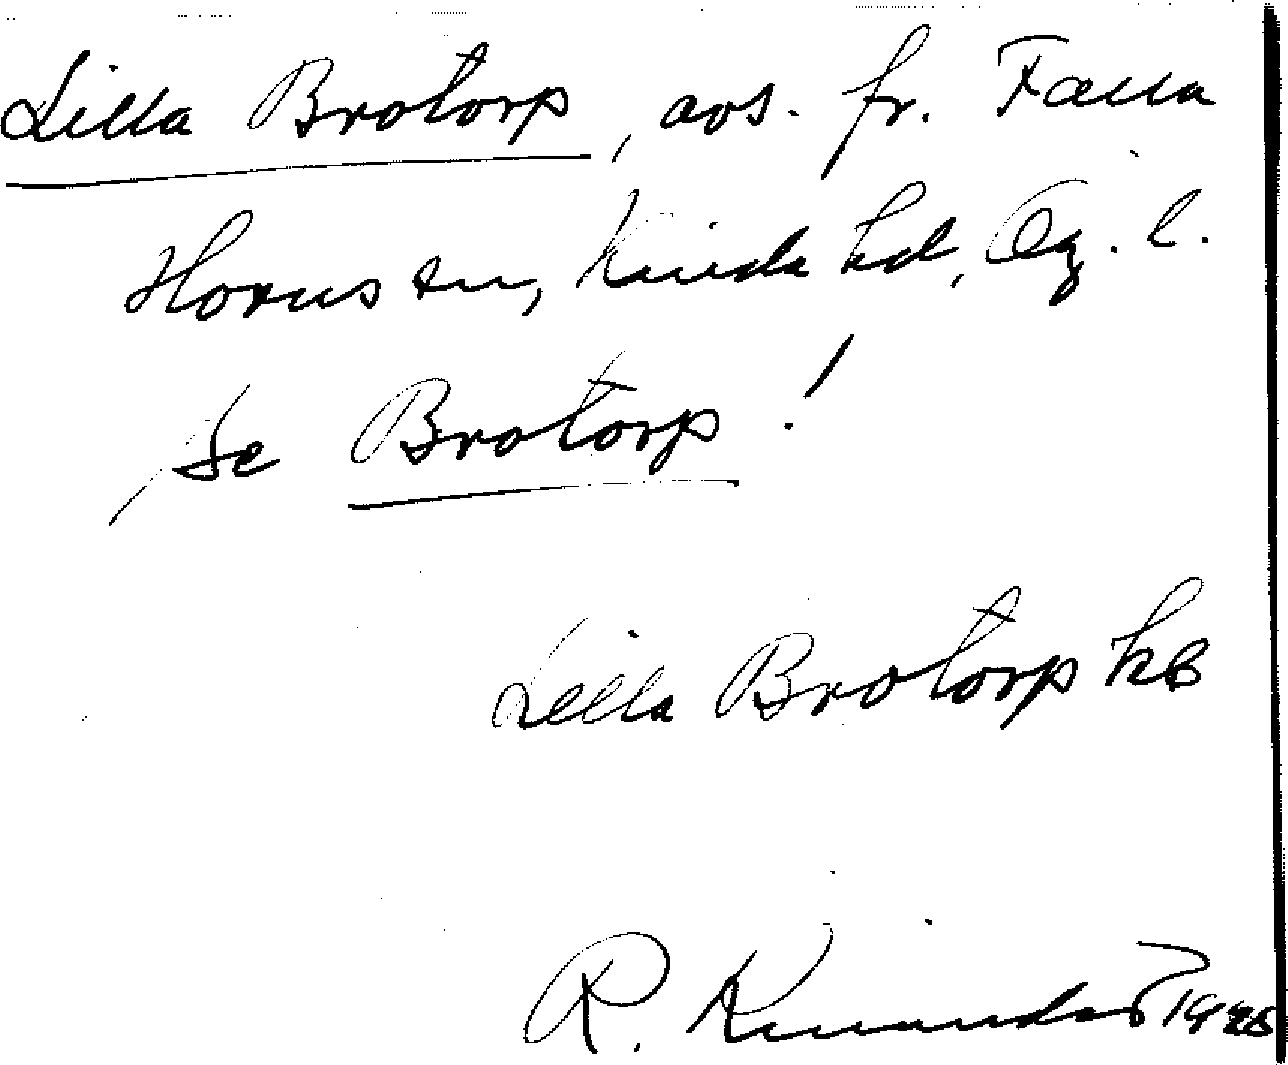 Lilla Brotorp, avs. fr. Falla
Horns sn, Kinda hd, Ög. l.
Se Brotorp!
Lilla Brotorp kB
R. Kinnander 1928